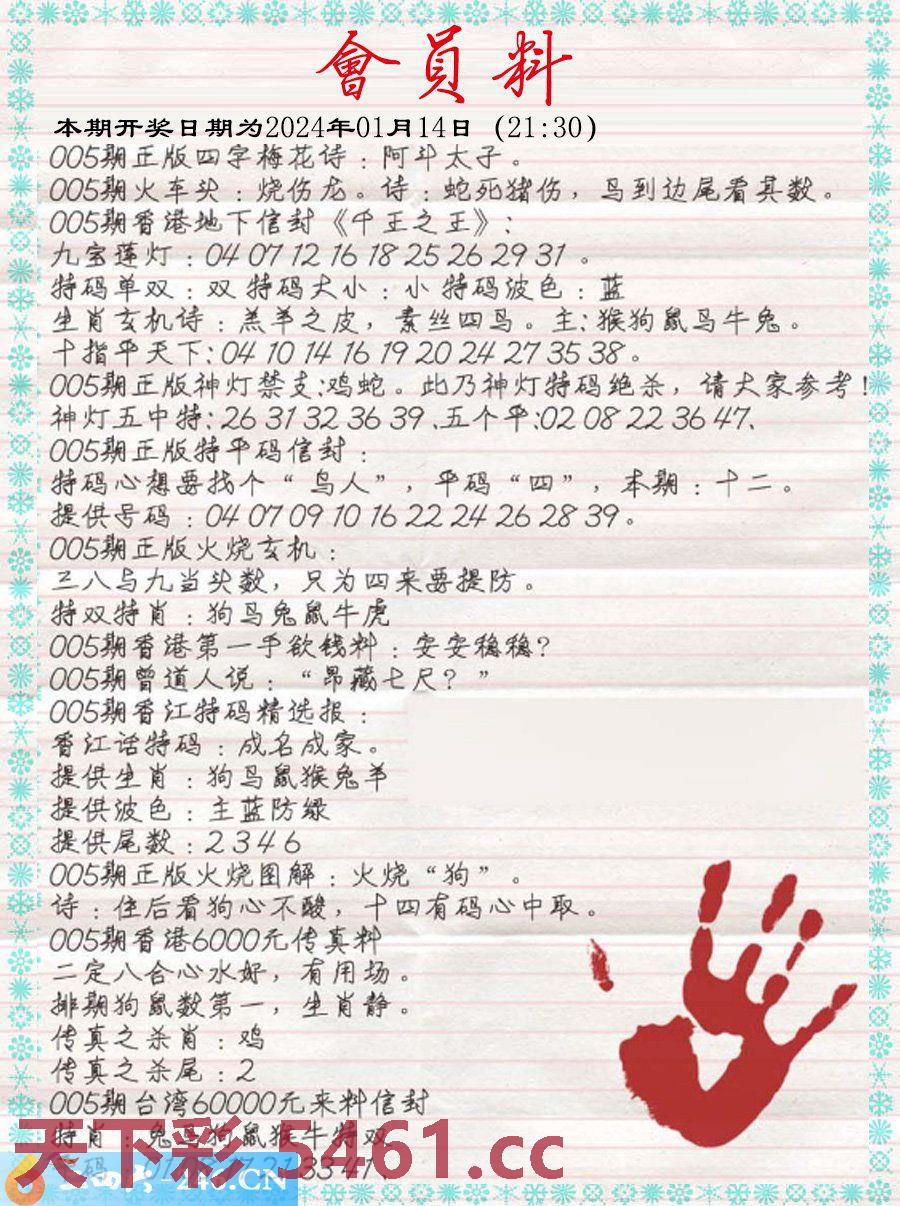 會員料
本期开奖日期为2024年01月14日 (21:30)
005期正版四字梅花诗：阿斗太子。
005期火车头：烧伤龙。诗：蛇死猪伤，鸟到边尾看其数。
005期香港地下信封《千王之王》：
九宝莲灯：04 07 12 16 18 25 26 29 31 。
特码单双：双 特码大小：小 特码波色：蓝
生肖玄机诗：羔羊之皮，素丝四鸟。主：猴狗鼠鸟牛兔。
十指平天下：04 10 14 16 19 20 24 27 35 38。
005期正版神灯禁支：鸡蛇。此乃神灯特码绝杀，请大家参考！
神灯五中特：26 31 32 36 39 、五个平：02 08 22 36 47、
005期正版特平码信封：
特码心想要找个“鸟人”，平码“四”，本期：十二。
提供号码：04 07 09 10 16 22 24 26 28 39。
005期正版火烧玄机：
三八与九当头数，只为四来要提防。
特双特肖：狗鸟兔鼠牛虎
005期香港第一手欲钱料：安安稳稳？
005期曾道人说：“昂藏七尺？”
005期香江特码精选报：
香江话特码：成名成家。
提供生肖：狗鸟鼠猴兔羊
提供波色：主蓝防绿
提供尾数：2 3 4 6
005期正版火烧图解：火烧“狗”。
诗：住后看狗心不酸，十四有码心中取。
005期香港6000元传真料
二定八合心水好，有用场。
排期狗鼠数第一，生肖静。
传真之杀肖：鸡
传真之杀尾：2
005期台湾60000元来料信封
特肖：兔马狗鼠猴牛特双
天下彩 5461.cc
33 41
246.CN